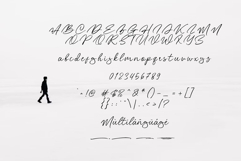 A B C D E F G H I J K L M N
O P Q R S T U V W X Y Z
a b c d e f g h i j k l m n o p q r s t u v w x y z
0 1 2 3 4 5 6 7 8 9
Multilanguage